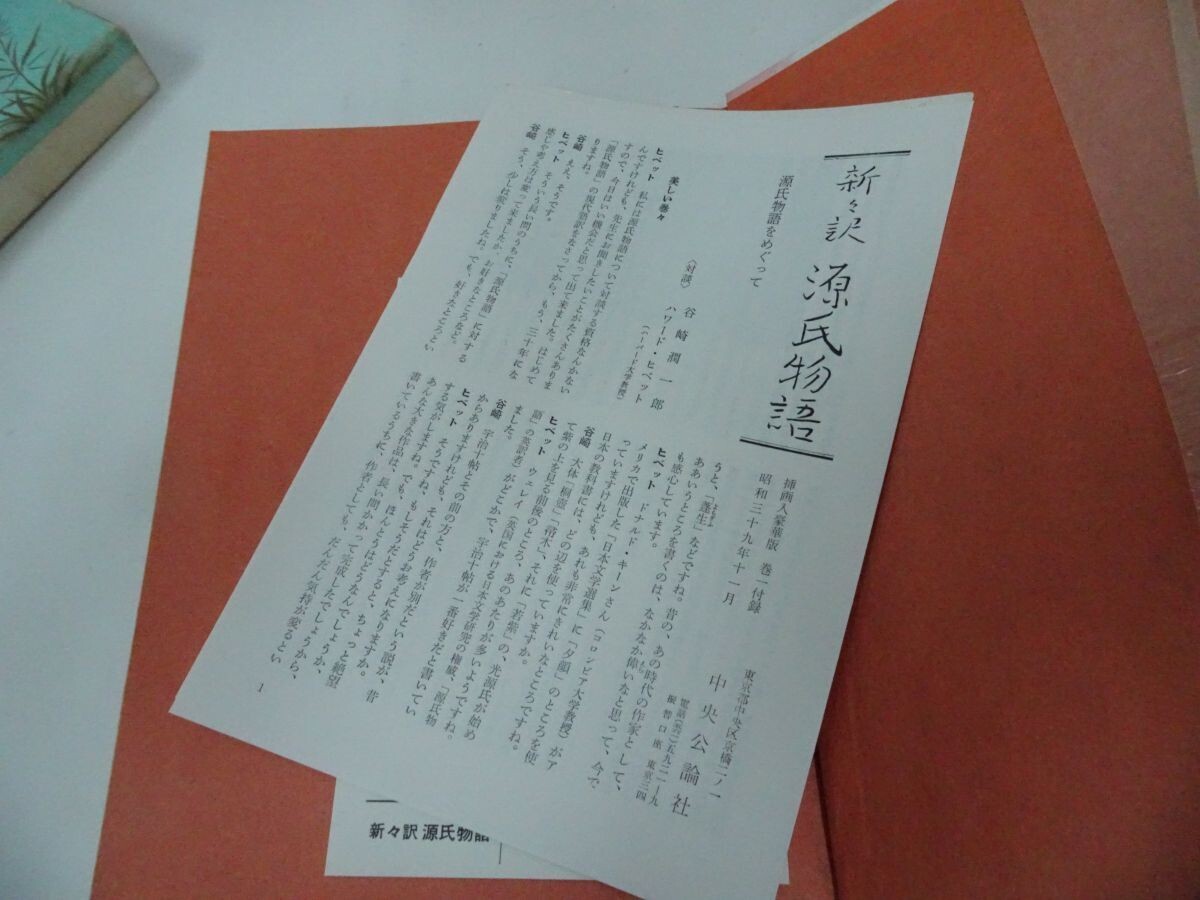 新々訳 源氏物語
挿画入豪華版 巻一付録
昭和三十九年十一月
東京都中央区京橋二ノ一
中央公論社
源氏物語をめぐって
〈対談〉 谷崎潤一郎
ハワード・ヒベット
(ハーバード大学教授)
美しい巻々
ヒベット 私には源氏物語について対談する資格なんかない
んですけれども、先生にお聞きしたいことがたくさんありま
すので、今日はいい機会だと思って出て来ました。はじめて
『源氏物語』の現代語訳をなさってから、もう、三十年にな
りますね。
谷崎 ええ、そうです。
ヒベット そういう長い間のうちに、『源氏物語』に対する
感じや考え方は変って来ましたか。お好きなところなど。
谷崎 そう、少しは変りましたね。でも、好きなところとい
うと、「蓬生」などですね。昔の、あの時代の作家として、
ああいうところを書くのは、なかなか偉いなと思って、今で
も感心しています。
ヒベット ドナルド・キーンさん(コロンビア大学教授)がア
メリカで出版した『日本文学選集』に「夕顔」のところを使
っていますけれども、あれも非常にきれいなところですね。
日本の教科書には、どの辺を使っていますか。
谷崎 大体「桐壺」「帚木」、それに「若紫」の、光源氏が始め
て紫の上を見る前後のところ、あのあたりが多いようですね。
ヒベット ウェレイ(英国における日本文学研究の権威、『源氏物
語』の英訳者)がどこかで、宇治十帖が一番好きだと書いてい
ました。
谷崎 宇治十帖とその前の方と、作者が別だという説が、昔
からありますけれども、それはどうお考えになりますか。
ヒベット そうですね、もしそうだとすると、ちょっと絶望
する気がしますね。でも、ほんとうはどうなんでしょうか、
あんな大きな作品は、長い間かかって完成したでしょうから、
書いているうちに、作者としても、だんだん気持が変るとい
1
新々訳 源氏物語